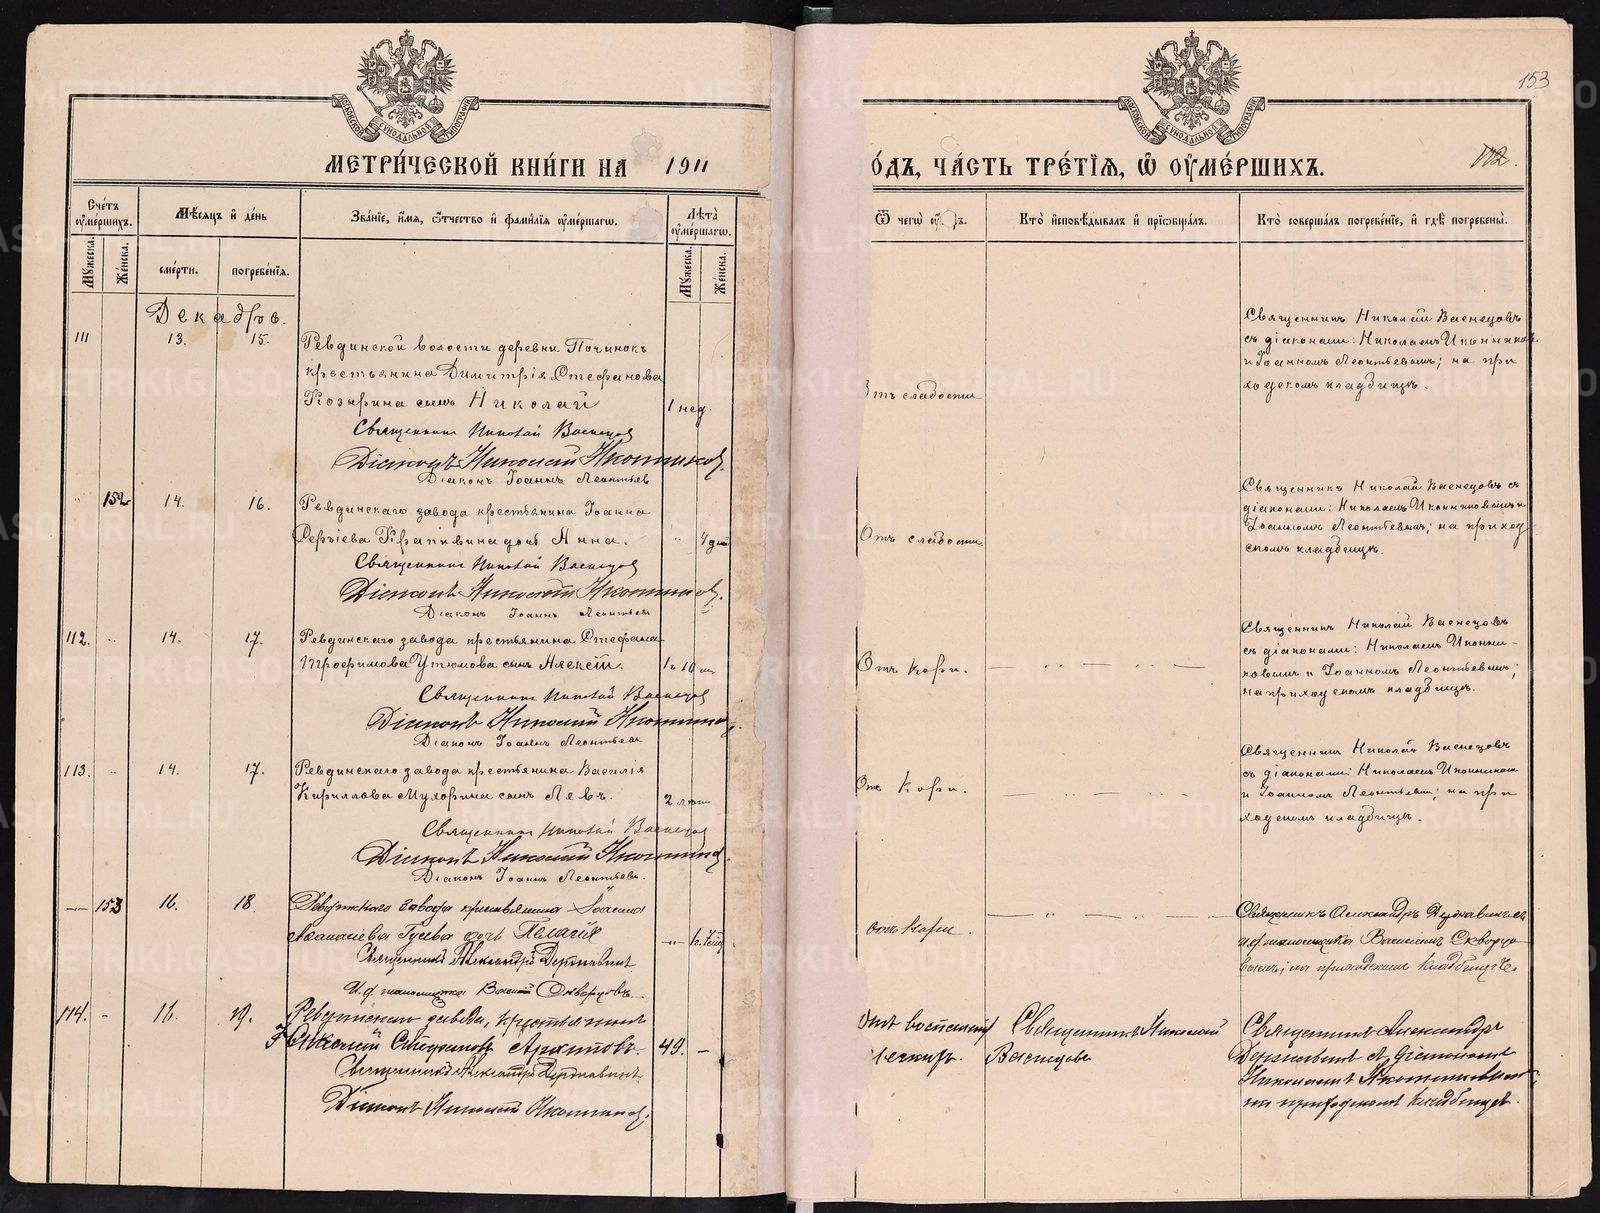 153
МОСКОВСКОЙ СѴНОДАЛЬНОЙ ТИПОГРАФІИ
МОСКОВСКОЙ СѴНОДАЛЬНОЙ ТИПОГРАФІИ
МЕТРИ́ЧЕСКОЙ КНИ́ГИ НА 1911
О́ДЪ, ЧА́СТЬ ТРЕ́ТІЯ, Ѡ҆ ОУ҆МЕ́РШИХЪ.
112.
Сче́тъ оу҆ме́ршихъ.
Мужеска.
Же́нска.
Мѣ́сяцъ и҆ де́нь
сме́рти.
погребе́нїя.
Зва́нїе, и҆́мя, ѻ҆́тчество и҆ фами́лїя оу҆ме́ршагѡ.
Лѣта̀ оу҆ме́ршагѡ.
Мужеска.
Же́нска.
Ѿ чегѡ̀
Кто̀ и҆сповѣ́дывалъ и҆ прїѡбща́лъ.
Кто̀ соверша́лъ погребе́нїе, и҆ гдѣ̀ погребены̀.
Декабрь.
111 13. 15. Ревдинской волости деревни Починокъ
крестьянина Димитрія Стефанова
Козырина сынъ Николай 1 нед.
Священникъ Николай Васнецовъ
Діаконъ Николай Иконниковъ.
Діаконъ Іоаннъ Леонтьевъ
отъ слабости
Священникъ Николай Васнецовъ
съ діаконами: Николаемъ Иконников.
и Іоанномъ Леонтьевымъ; на при
ходскомъ кладбищѣ.
152 14. 16. Ревдинскаго завода крестьянина Іоанна
Сергіева Крапивина дочь Анна. 4 дней
Священникъ Николай Васнецовъ
Діаконъ Николай Иконниковъ.
Діаконъ Іоаннъ Леонтьевъ
Отъ слабости
Священникъ Николай Васнецовъ съ
діаконами: Николаемъ Иконниковымъ и
Іоанномъ Леонтьевымъ; на приход
скомъ кладбищѣ.
112. 14. 17. Ревдинскаго завода крестьянина Стефана
Трофимова Утюмова сынъ Алексій. 1 г 10 м
Священникъ Николай Васнецовъ
Діаконъ Николай Иконниковъ.
Діаконъ Іоаннъ Леонтьевъ
Отъ кори.
Священникъ Николай Васнецовъ
съ діаконами: Николаемъ Иконни-
ковымъ и Іоанномъ Леонтьевымъ;
на приходскомъ кладбищѣ.
113. 14. 17. Ревдинскаго завода крестьянина Василія
Кириллова Мухорина сынъ Левъ. 2 лѣтъ
Священникъ Николай Васнецовъ
Діаконъ Николай Иконниковъ.
Діаконъ Іоаннъ Леонтьевъ.
Отъ кори.
Священникъ Николай Васнецовъ
съ діаконами: Николаемъ Иконников
и Іоанномъ Леонтьевымъ; на при
ходскомъ кладбищѣ.
153 16. 18. Ревдинскаго завода крестьянина Іоанна
Аѳанасіева Гусева дочь Пелагія
Священникъ Александръ Державинъ
И. д. псаломщика Василій Скворцовъ
отъ кори.
Священникъ Александръ Державинъ съ
и. д. псаломщика Василіемъ Скворцо
вымъ; на приходскомъ кладбищѣ.
114. - 16. 19. Ревдинскаго завода, крестьянинъ
Евксентій Стефановъ Архиповъ. 49. -
Священникъ Александръ Державинъ
Діаконъ Николай Иконниковъ.
Отъ воспаленія
печени.
Священникъ Николай
Васнецовъ
Священникъ Александръ
Державинъ съ діакономъ
Николаемъ Иконниковымъ;
на приходскомъ кладбищѣ.
METRIKI.GASO-URAL.RU